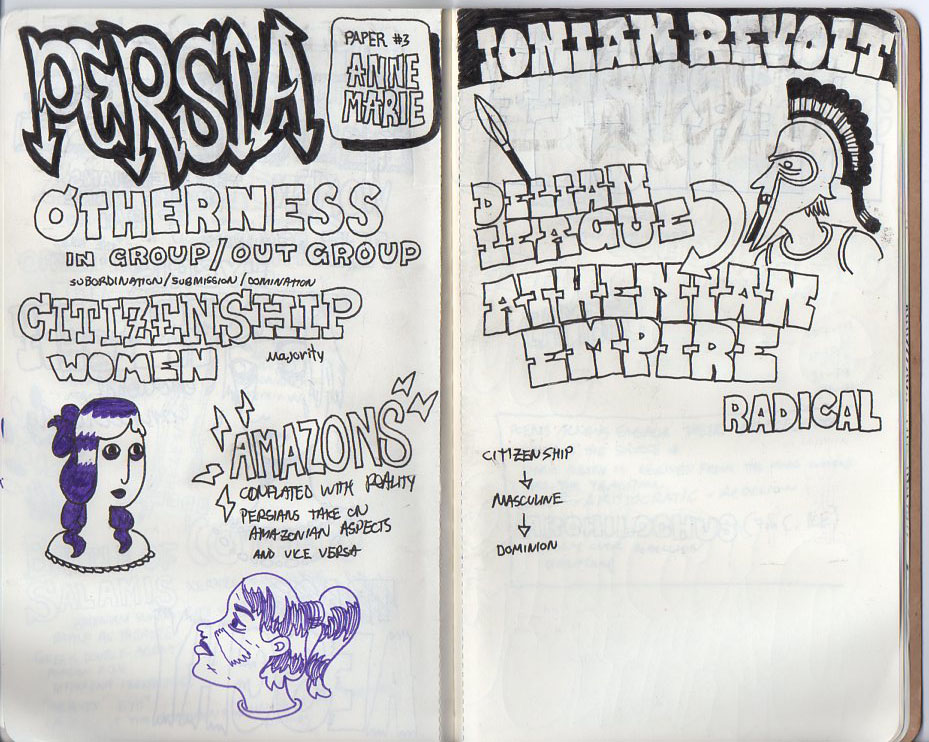 PERSIA
PAPER #3
ANNE
MARIE
OTHERNESS
IN GROUP/OUT GROUP
SUBORDINATION/SUBMISSION/DOMINATION
CITIZENSHIP
WOMEN
Majority
AMAZONS
CONFLATED WITH REALITY
PERSIANS TAKE ON
AMAZONIAN ASPECTS
AND VICE VERSA
IONIAN REVOLT
DELIAN
LEAGUE
ATHENIAN
EMPIRE
RADICAL
CITIZENSHIP
MASCULINE
DOMINION